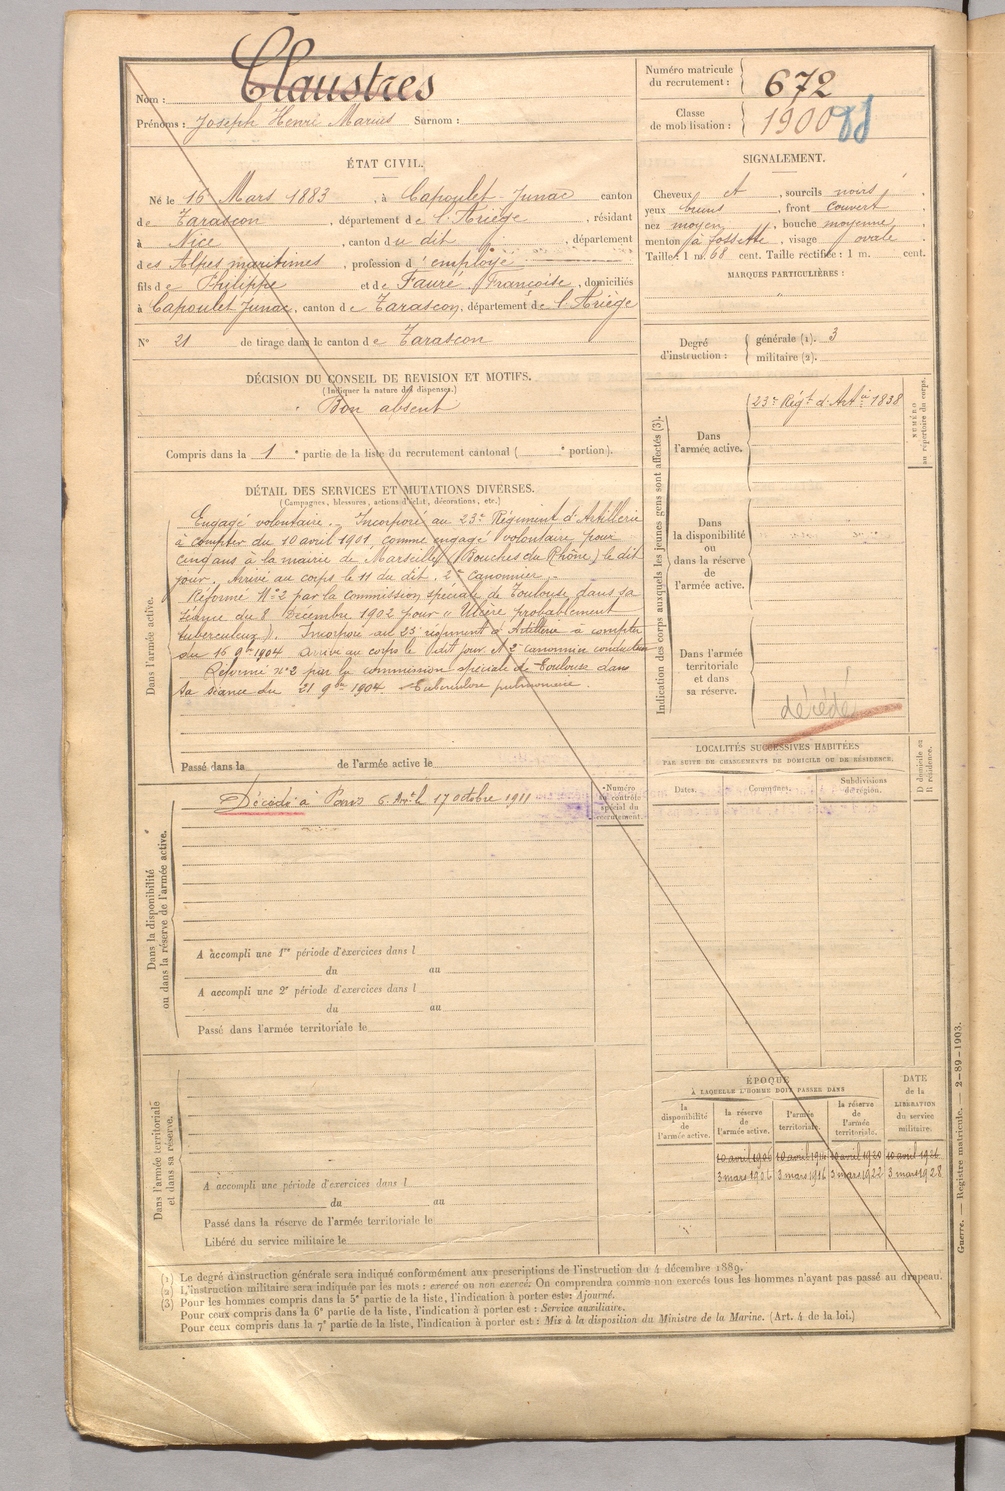 Nom : Claustres
Prénoms : Joseph Henri Marius Surnom :
Numéro matricule
du recrutement : 672
Classe
de mobilisation : 1900
ÉTAT CIVIL.
Né le 16 Mars 1883, à Capoulet-Junac canton
de Tarascon, département de l'Ariège, résidant
à Nice, canton du dit, département
des Alpes maritimes, profession d' employé
fils de Philippe et de Faure, Françoise, domiciliés
à Capoulet Junac, canton de Tarascon, département de l'Ariège
N° 21 de tirage dans le canton de Tarascon
SIGNALEMENT.
Cheveux et, sourcils noirs,
yeux bruns, front couvert
nez moyen, bouche moyenne,
menton à fossette, visage ovale
Taille : 1 m. 68 cent. Taille rectifiée : 1 m. cent.
MARQUES PARTICULIÈRES :
"
Degré
d'instruction :
générale (1). 3
militaire (2).
DÉCISION DU CONSEIL DE REVISION ET MOTIFS.
(Indiquer la nature des dispenses.)
Bon absent
Compris dans la 1e partie de la liste du recrutement cantonal ( e portion).
DÉTAIL DES SERVICES ET MUTATIONS DIVERSES.
(Campagnes, blessures, actions d'éclat, décorations, etc.)
Dans l'armée active.
Engagé volontaire. Incorporé au 23e Régiment d'Artillerie
à compter du 10 avril 1901, comme engagé volontaire pour
cinq ans à la mairie de Marseille (Bouches du Rhône) le dit
jour. Arrivé au corps le 11 du dit, 2e canonnier.
Réformé N°2 par la commission spéciale de Toulouse dans sa
séance du 8 Décembre 1902 pour "Ulcère probablement
tuberculeux). Incorporé au 23e régiment d'Artillerie à compter
du 16 9bre 1904 arrivé au corps le dit jour. 2e canonnier conducteur
Réformé n°2 par la commission spéciale de Toulouse dans
sa séance du 21 9bre 1904. Tuberculose pulmonaire.
Passé dans la de l'armée active le
Indication des corps auxquels les jeunes gens sont affectés (3).
NUMÉRO
au répertoire du corps.
Dans
l'armée active.
23e Régt d'Artie 1838
Dans
la disponibilité
ou
dans la réserve
de
l'armée active.
Dans l'armée
territoriale
et dans
sa réserve.
décédé
Dans la disponibilité
ou dans la réserve de l'armée active.
Décédé à Paris 6e Arrt le 17 octobre 1911
Numéro
au contrôle
spécial du
recrutement.
A accompli une 1re période d'exercices dans l
du au
A accompli une 2e période d'exercices dans l
du au
Passé dans l'armée territoriale le
LOCALITÉS SUCCESSIVES HABITÉES
PAR SUITE DE CHANGEMENTS DE DOMICILE OU DE RÉSIDENCE.
Dates. Communes. Subdivisions
de région.
D domicile ou
R résidence.
Dans l'armée territoriale
et dans sa réserve.
A accompli une période d'exercices dans l
du au
Passé dans la réserve de l'armée territoriale le
Libéré du service militaire le
ÉPOQUE
À LAQUELLE L'HOMME DOIT PASSER DANS
la
disponibilité
de
l'armée active.
la réserve
de
l'armée active.
l'armée
territoriale.
la réserve
de
l'armée
territoriale.
DATE
de la
LIBÉRATION
du service
militaire.
10 avril 1906 10 avril 1914 10 avril 1920 10 avril 1926
3 mars 1906 3 mars 1916 3 mars 1922 3 mars 1928
(1) Le degré d'instruction générale sera indiqué conformément aux prescriptions de l'instruction du 4 décembre 1889.
(2) L'instruction militaire sera indiquée par les mots : exercé ou non exercé. On comprendra comme non exercés tous les hommes n'ayant pas passé au drapeau.
(3) Pour les hommes compris dans la 5e partie de la liste, l'indication à porter est : Ajourné.
Pour ceux compris dans la 6e partie de la liste, l'indication à porter est : Service auxiliaire.
Pour ceux compris dans la 7e partie de la liste, l'indication à porter est : Mis à la disposition du Ministre de la Marine. (Art. 4 de la loi.)
Guerre. — Registre matricule. — 2-89-1903.